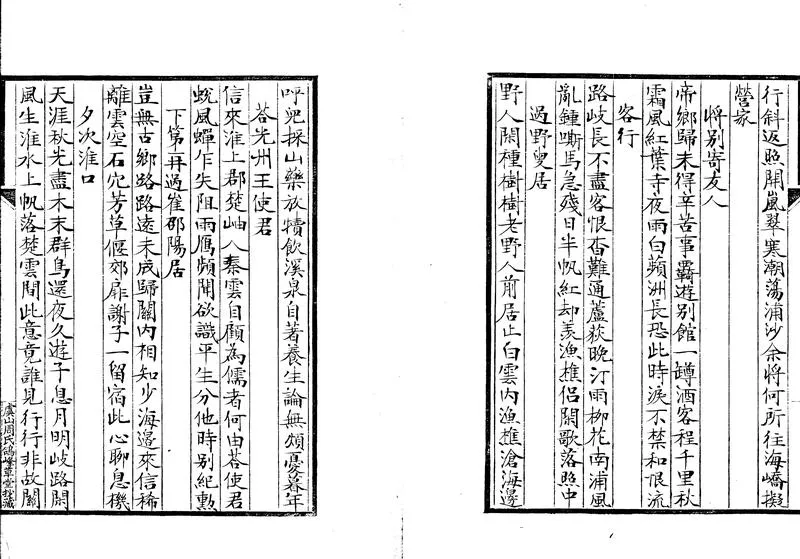 行斜返照開嵐翠寒潮蕩浦沙余將何所往海嶠擬
營家
將別寄友人
帝鄉歸未得辛苦事羈遊別館一罇酒客程千里秋
霜風紅葉寺夜雨白蘋洲長恐此時淚不禁和恨流
客行
路岐長不盡客恨杳難通蘆荻晚汀雨柳花南浦風
亂鍾嘶馬急殘日半帆紅却羨漁樵侶閑歌落照中
過野叟居
野人閑種樹樹老野人前居止白雲內漁樵滄海邊
呼兒採山藥放犢飲溪泉自著養生論無煩憂暮年
荅光州王使君
信來淮上郡楚岫入秦雲自顧為儒者何由荅使君
蛻風蟬乍失阻雨鴈頻聞欲識平生分他時別紀勲
下第再過崔邵陽居
豈無古鄉路路遠未成歸關內相知少海邊來信稀
離雲空石穴芳草偃郊扉謝子一留宿此心聊息機
夕次淮口
天涯秋光盡木末群鳥還夜久遊子息月明岐路閑
風生淮水上帆落楚雲間此意竟誰見行行非故關
虞山周氏鴿峰草堂鈔藏